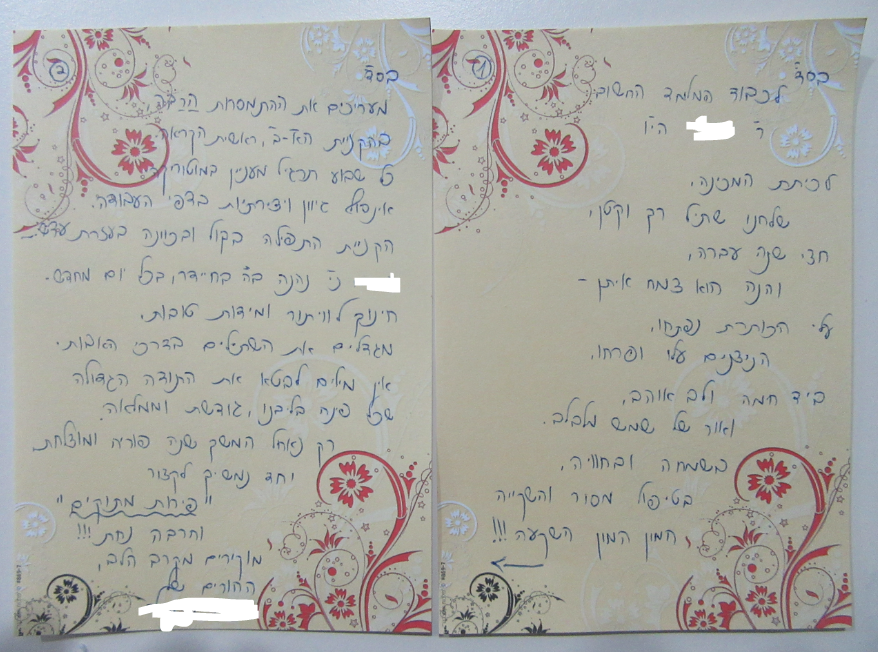 ①
בס"ד
לכבוד המלמד החשוב
ר' הי"ו
לכיתת המכינה,
שלחנו שתיל רק וקטן,
חצי שנה עברה,
והנה הוא צמח איתן -
עלי הכותרת נפתחו,
הניצנים עלו ופרחו,
ביד חמה ולב אוהב,
ואור של שמש מלבלב.
בשמחה ובחוויה,
בטיפול מסור והשקייה
המון המון השקעה!!!
②
בס"ד
מעריכים את ההתמסרות הרבה,
בהקניית הא-ב, ראשית הקריאה
כל שבוע תרגיל מענין במוטוריקה
אינסוף גיוון ויצירתיות בדפי העבודה.
הקניית התפילה בקול ובכוונה בעזרת
ני' נהנה ב"ה בחיידר, בכל יום מחדש.
חינוך לוויתור ומידות טובות,
מגדלים את השתילים בדרכי האבות.
אין מילים לבטא את התודה הגדולה
שכל פינה בליבנו, גודשת וממלאה.
רק נאחל המשך שנה פוריה ומוצלחת
יחד נמשיך לקצור
"פירות מתוקים"
והרבה נחת!!!
מוקירים מקרב הלב,
ההורים של